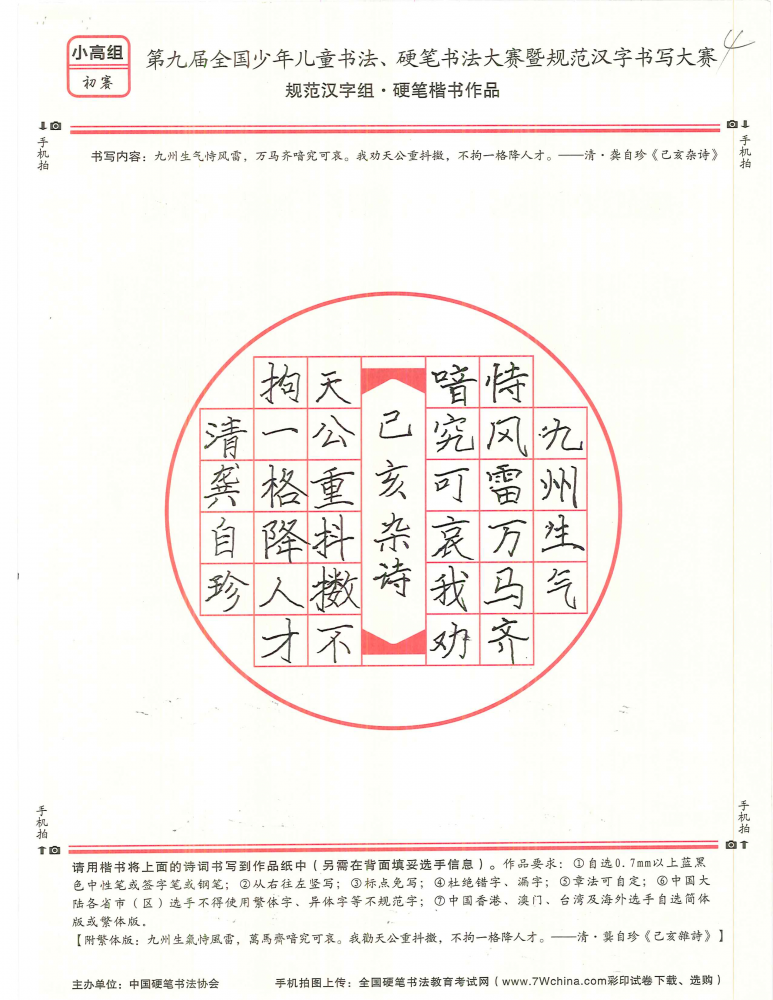 小高组
初赛
第九届全国少年儿童书法、硬笔书法大赛暨规范汉字书写大赛
4
规范汉字组·硬笔楷书作品
手机拍
手机拍
书写内容：九州生气恃风雷，万马齐喑究可哀。我劝天公重抖擞，不拘一格降人才。——清·龚自珍《己亥杂诗》
九州生气
恃风雷万马齐
喑究可哀我劝
己亥杂诗
天公重抖擞不
拘一格降人才
清龚自珍
手机拍
手机拍
请用楷书将上面的诗词书写到作品纸中（另需在背面填妥选手信息）。作品要求：①自选0.7mm以上蓝黑
色中性笔或签字笔或钢笔；②从右往左竖写；③标点免写；④杜绝错字、漏字；⑤章法可自定；⑥中国大
陆各省市（区）选手不得使用繁体字、异体字等不规范字；⑦中国香港、澳门、台湾及海外选手自选简体
版或繁体版。
【附繁体版：九州生氣恃風雷，萬馬齊喑究可哀。我勸天公重抖擻，不拘一格降人才。——清·龔自珍《己亥雜詩》】
主办单位：中国硬笔书法协会
手机拍图上传：全国硬笔书法教育考试网（www.7Wchina.com彩印试卷下载、选购）